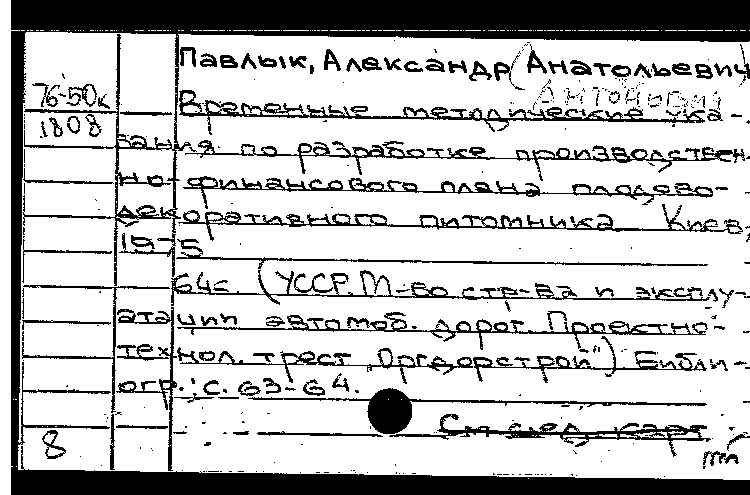 Павлык, Александр (Анатольевич)
Антонович
76-50к
1808
Временные методические ука-
зания по разработке производствен
но-финансового плана плодово-
декоративного питомника. Киев,
1975
64с. (УССР. М-во стр-ва и эксплу-
атации автомоб. дорог. Проектно-
технол. трест „Оргдорстрой“) Библи-
огр.: с. 63-64.
См след. карт
8